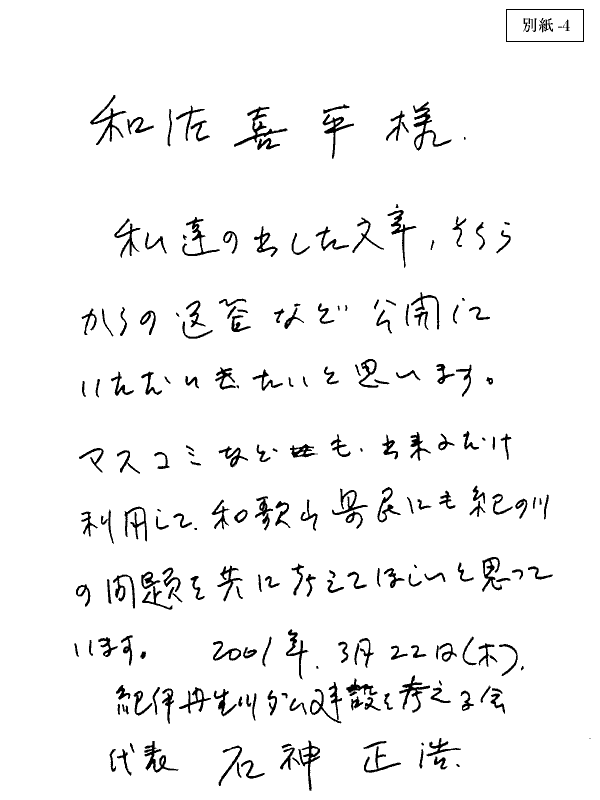 別紙-4
和佐喜平様.
私達の出した文章,そちら
からの返答など公開して
いただいきたいと思います。
マスコミなども、出来るだけ
利用して、和歌山県民にも紀の川
の問題を共に考えてほしいと思って
います。 2001年.3月22日(木).
紀伊丹生川ダム建設を考える会
代表 石神 正浩.